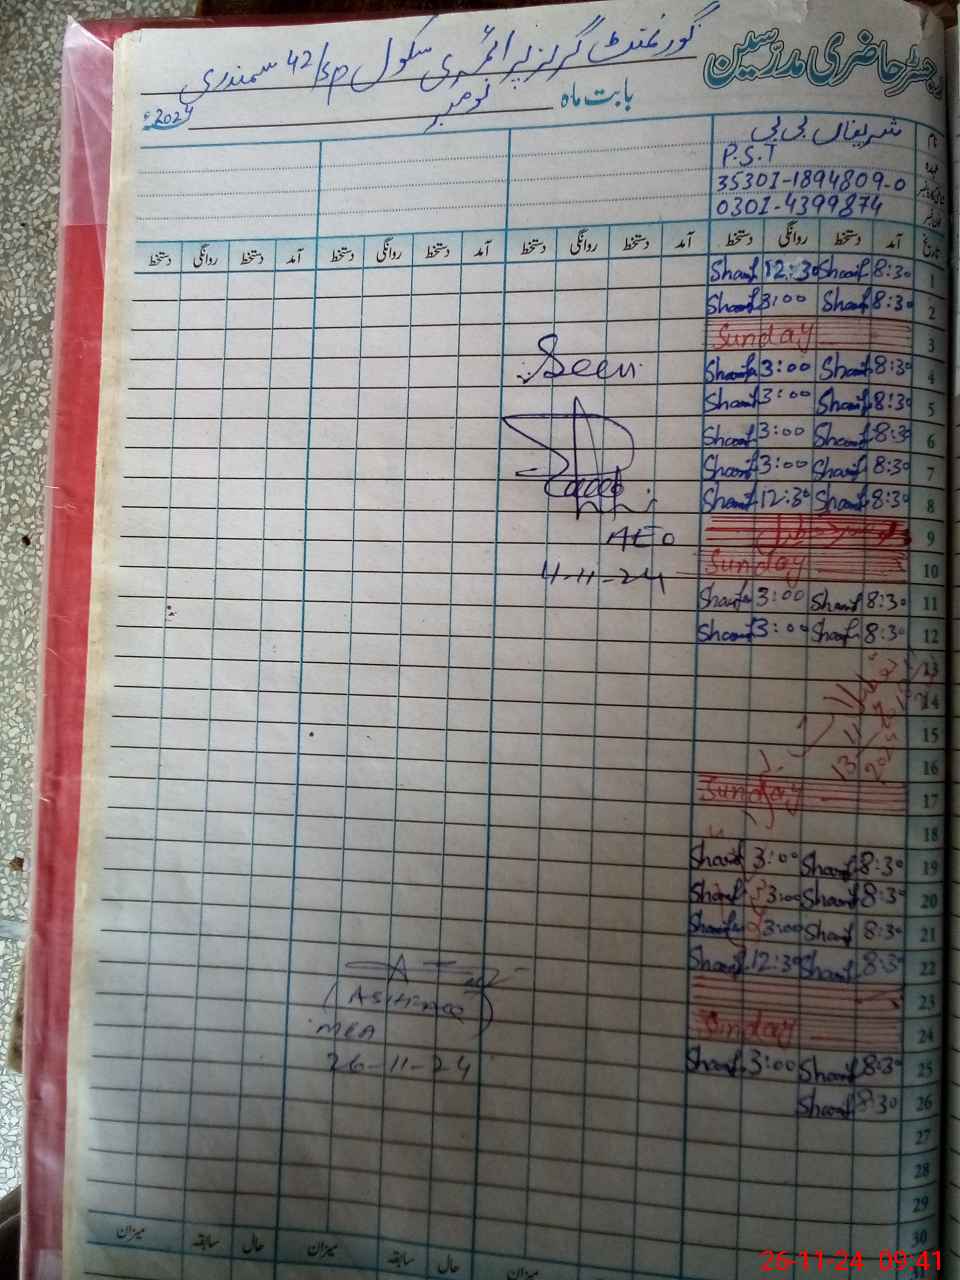 رجسٹر حاضری مدرسین
گورنمنٹ گرلز پرائمری سکول 42/SP سمندری
بابت ماہ نومبر 2024ء
نام شریفاں بی بی
عہدہ P.S.T
35301-1894809-0
0301-4399874
تاریخ آمد دستخط روانگی دستخط آمد دستخط روانگی دستخط آمد دستخط روانگی دستخط آمد دستخط روانگی دستخط
1 8:30 Sharif 12:30 Sharif
2 8:30 Sharif 3:00 Sharif
3 Sunday
4 8:30 Sharif 3:00 Sharif
Seen
5 8:30 Sharif 3:00 Sharif
6 8:30 Sharif 3:00 Sharif
7 8:30 Sharif 3:00 Sharif
8 8:30 Sharif 12:30 Sharif
9
AEO
10 Sunday
4-11-24
11 8:30 Sharif 3:00 Sharif
12 8:30 Sharif 3:00 Sharif
13
14
15
16
13 11
17 Sunday
18
19 8:30 Sharif 3:00 Sharif
20 8:30 Sharif 3:00 Sharif
21 8:30 Sharif 3:00 Sharif
22 8:30 Sharif 12:30 Sharif
23
24 Sunday
MEA
25 8:30 Sharif 3:00 Sharif
26-11-24
26 8:30 Sharif
27
28
29
30
میزان حال سابقہ میزان حال سابقہ میزان
26-11-24 09:41